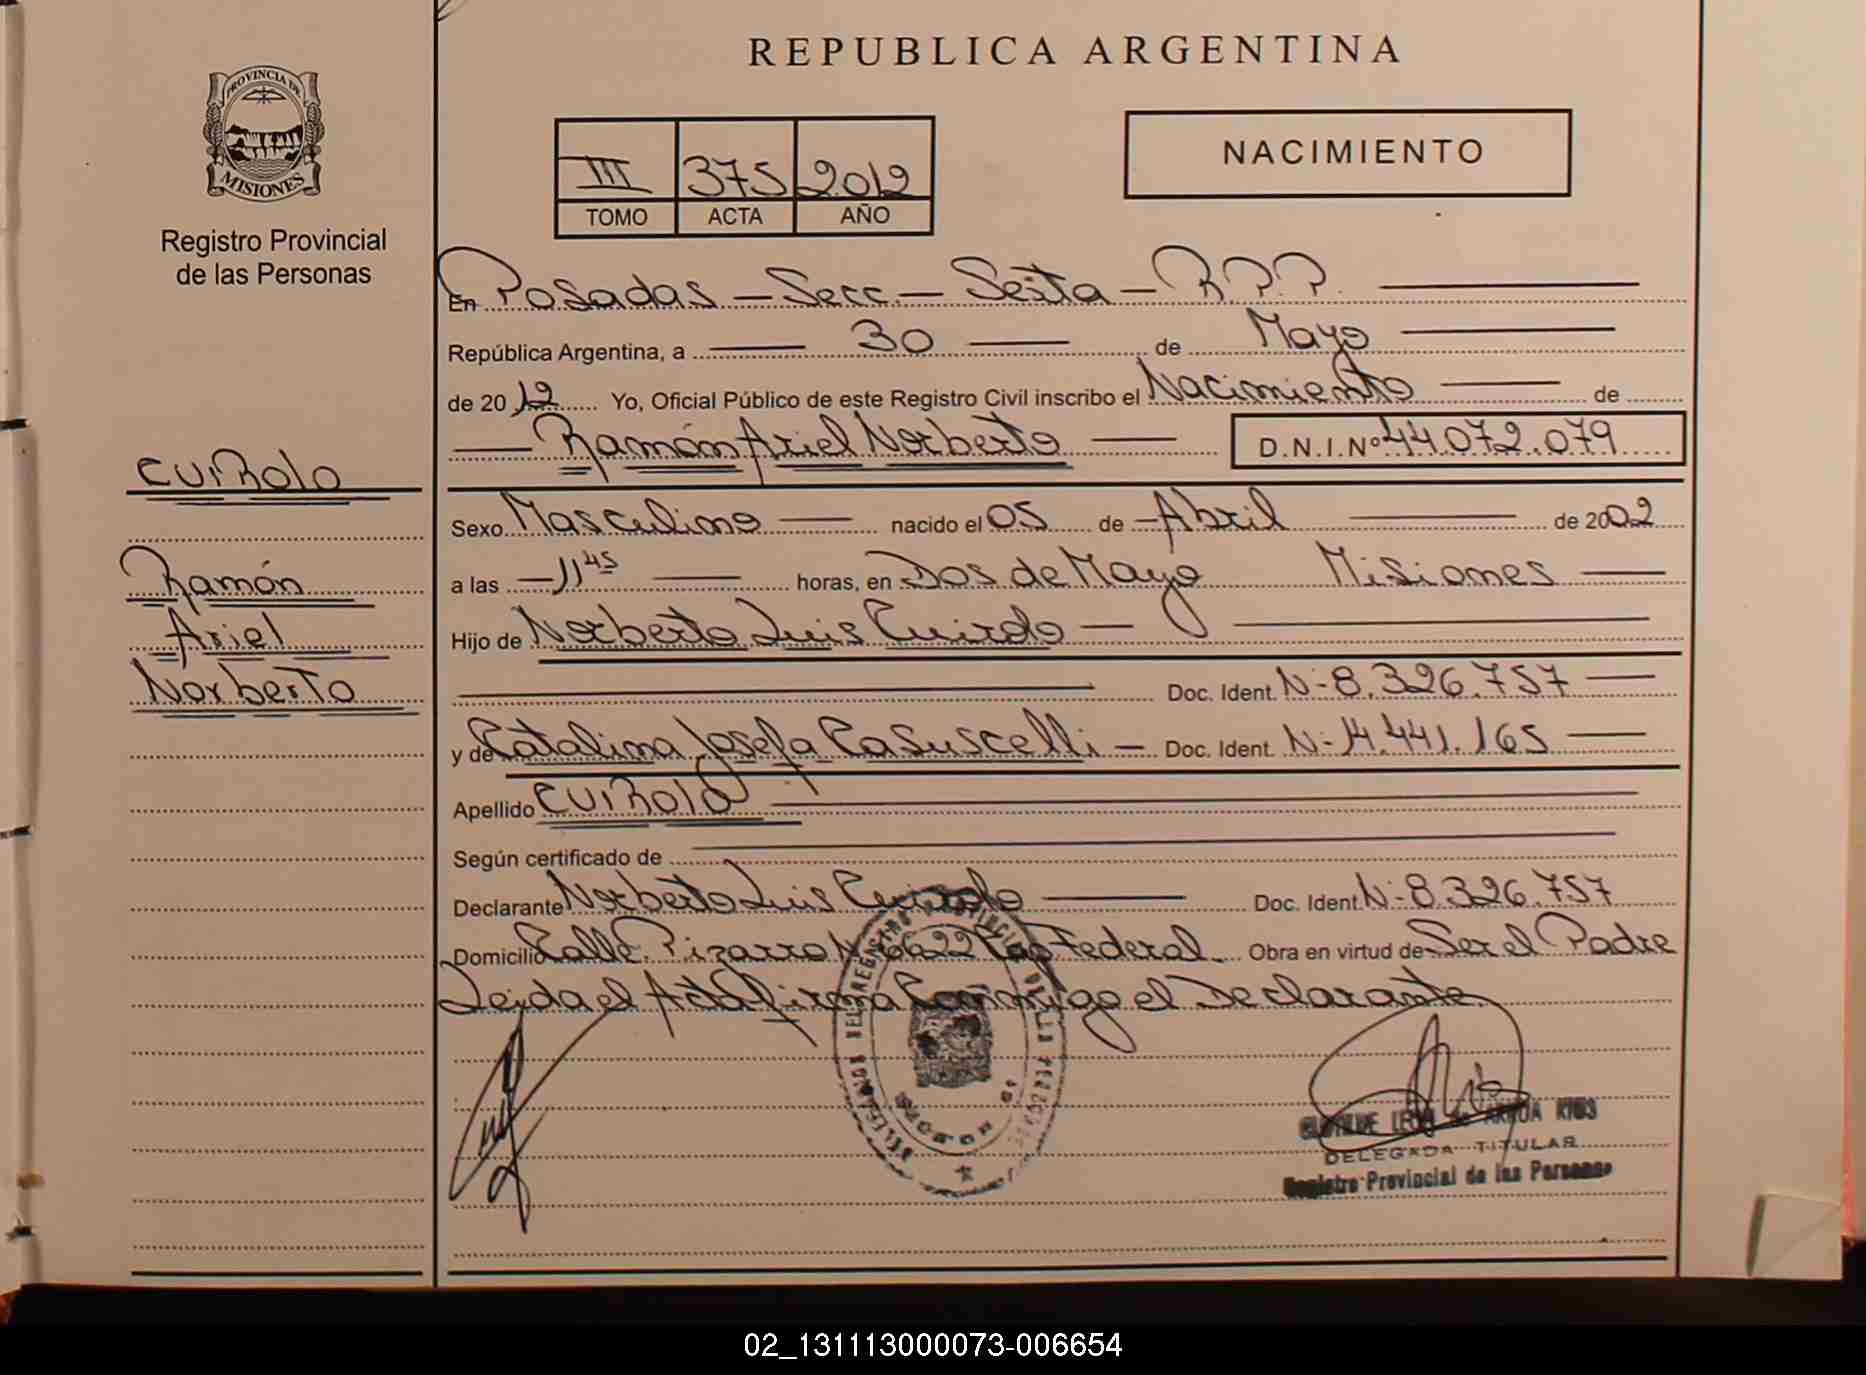 REPUBLICA ARGENTINA
PROVINCIA DE
MISIONES
Registro Provincial
de las Personas
III 375 2012
TOMO ACTA AÑO
NACIMIENTO
En Posadas - Secc. - Sexta - R.P.P.
República Argentina, a 30 de Mayo
de 20 12 Yo, Oficial Público de este Registro Civil inscribo el Nacimiento de
Ramón Ariel Norberto D.N.I.Nº 44.072.079
CUiRolo
Ramón
Ariel
Norberto
Sexo Masculino nacido el 05 de Abril de 2002
a las 11 45 horas, en Dos de Mayo Misiones
Hijo de Norberto Luis Cuirolo
Doc. Ident. Nº 8.326.757
y de Catalina Josefa Casuscelli - Doc. Ident. Nº 14.441.165
Apellido CUiRolo
Según certificado de
Declarante Norberto Luis Cuirolo Doc. Ident. Nº 8.326.757
Domicilio Calle Pizarro Nº 6622 Cap Federal Obra en virtud de Ser el Padre
Leida el Acta firma Conmigo el Declarante
DELEGADA TITULAR
Registro Provincial de las Personas
02_131113000073-006654